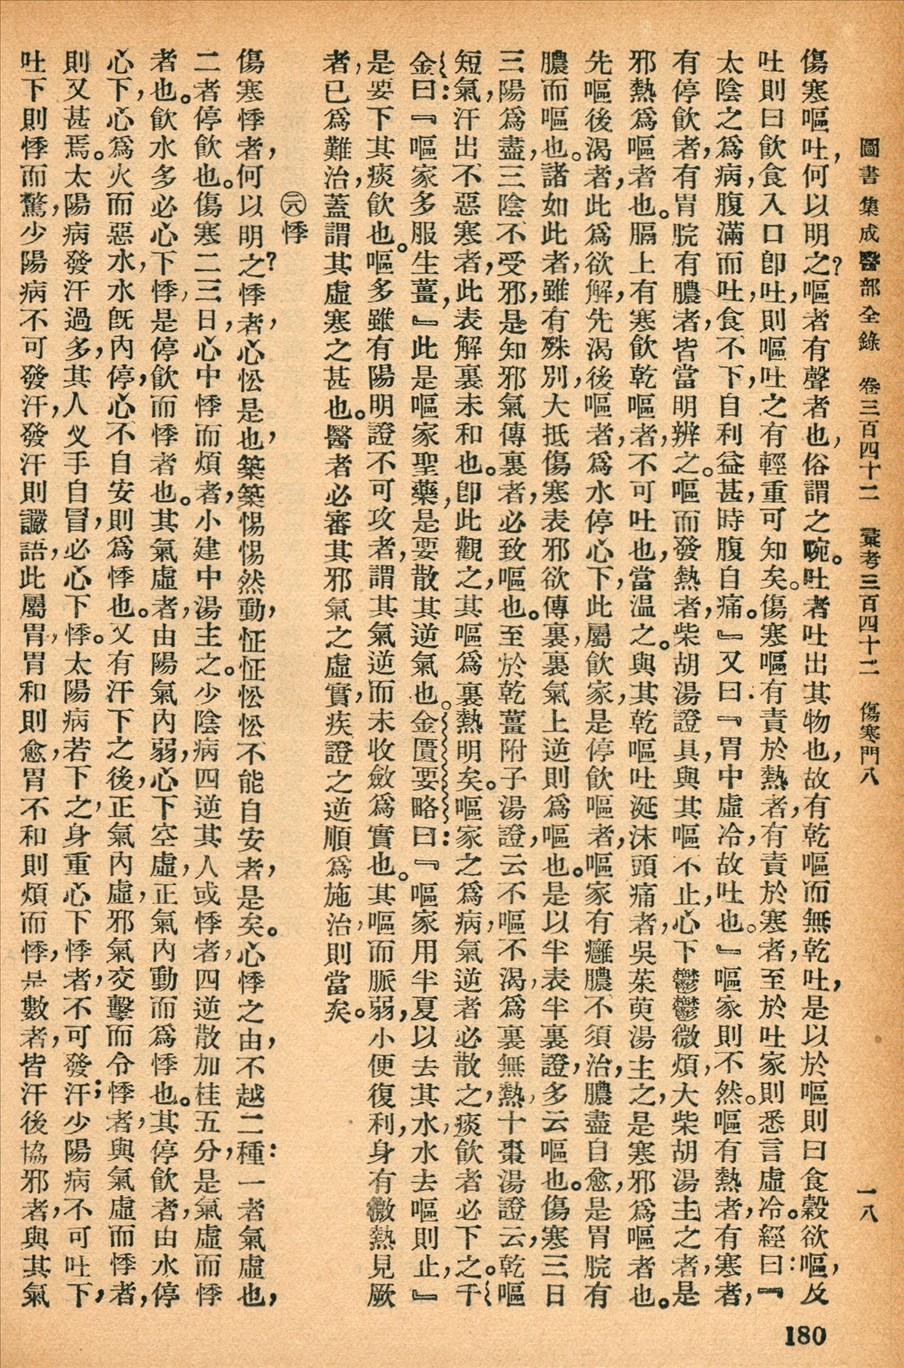 圖書集成醫部全錄　卷三百四十二　彙考三百四十二　傷寒門八　一八
傷寒嘔吐，何以明之？嘔者有聲者也，俗謂之啘。吐者吐出其物也，故有乾嘔而無乾吐，是以於嘔則曰食穀欲嘔，及
吐則曰飲食入口卽吐，則嘔吐之有輕重可知矣。傷寒嘔有責於熱者，有責於寒者，至於吐家則悉言虛冷。經曰：『
太陰之爲病，腹滿而吐，食不下，自利益甚，時腹自痛。』又曰：『胃中虛冷，故吐也。』嘔家則不然。嘔有熱者，有寒者，
有停飲者，有胃脘有膿者，皆當明辨之。嘔而發熱者，柴胡湯證具，與其嘔不止，心下鬱鬱微煩，大柴胡湯主之者，是
邪熱爲嘔者也。膈上有寒飲乾嘔者，不可吐也，當溫之。與其乾嘔吐涎沫頭痛者，吳茱萸湯主之，是寒邪爲嘔者也。
先嘔後渴者，此爲欲解，先渴後嘔者，爲水停心下，此屬飲家，是停飲嘔者，嘔家有癰膿不須治，膿盡自愈，是胃脘有
膿而嘔也。諸如此者，雖有殊別，大抵傷寒表邪欲傳裏，裏氣上逆則爲嘔也。是以半表半裏證，多云嘔也。傷寒三日，
三陽爲盡，三陰不受邪，是知邪氣傳裏者，必致嘔也。至於乾薑附子湯證，云不嘔不渴，爲裏無熱，十棗湯證云，乾嘔
短氣，汗出不惡寒者，此表解裏未和也。卽此觀之，其嘔爲裏熱明矣。嘔家之爲病，氣逆者必散之，痰飲者必下之。千
金曰：『嘔家多服生薑，』此是嘔家聖藥，是要散其逆氣也。金匱要略曰：『嘔家用半夏以去其水，水去嘔則止，』
是要下其痰飲也。嘔多雖有陽明證不可攻者，謂其氣逆而未收斂爲實也。其嘔而脈弱，小便復利，身有微熱見厥
者，已爲難治，蓋謂其虛寒之甚也。醫者必審其邪氣之虛實，疾證之逆順，爲施治則當矣。
㊅悸
傷寒悸者，何以明之？悸者，心忪是也，築築惕惕然動，怔怔忪忪不能自安者，是矣。心悸之由，不越二種：一者氣虛也，
二者停飲也。傷寒二三日，心中悸而煩者，小建中湯主之。少陰病四逆，其人或悸者，四逆散加桂五分，是氣虛而悸
者也。飲水多必心下悸，是停飲而悸者也。其氣虛者，由陽氣內弱，心下空虛，正氣內動而爲悸也。其停飲者，由水停
心下，心爲火而惡水，水旣內停，心不自安，則爲悸也。又有汗下之後，正氣內虛，邪氣交擊而令悸者，與氣虛而悸者，
則又甚焉。太陽病發汗過多，其人叉手自冒，必心下悸。太陽病若下之，身重心下悸者，不可發汗；少陽病不可吐下，
吐下則悸而驚，少陽病不可發汗，發汗則讝語，此屬胃，胃和則愈，胃不和則煩而悸，是數者，皆汗後協邪者，與其氣
180